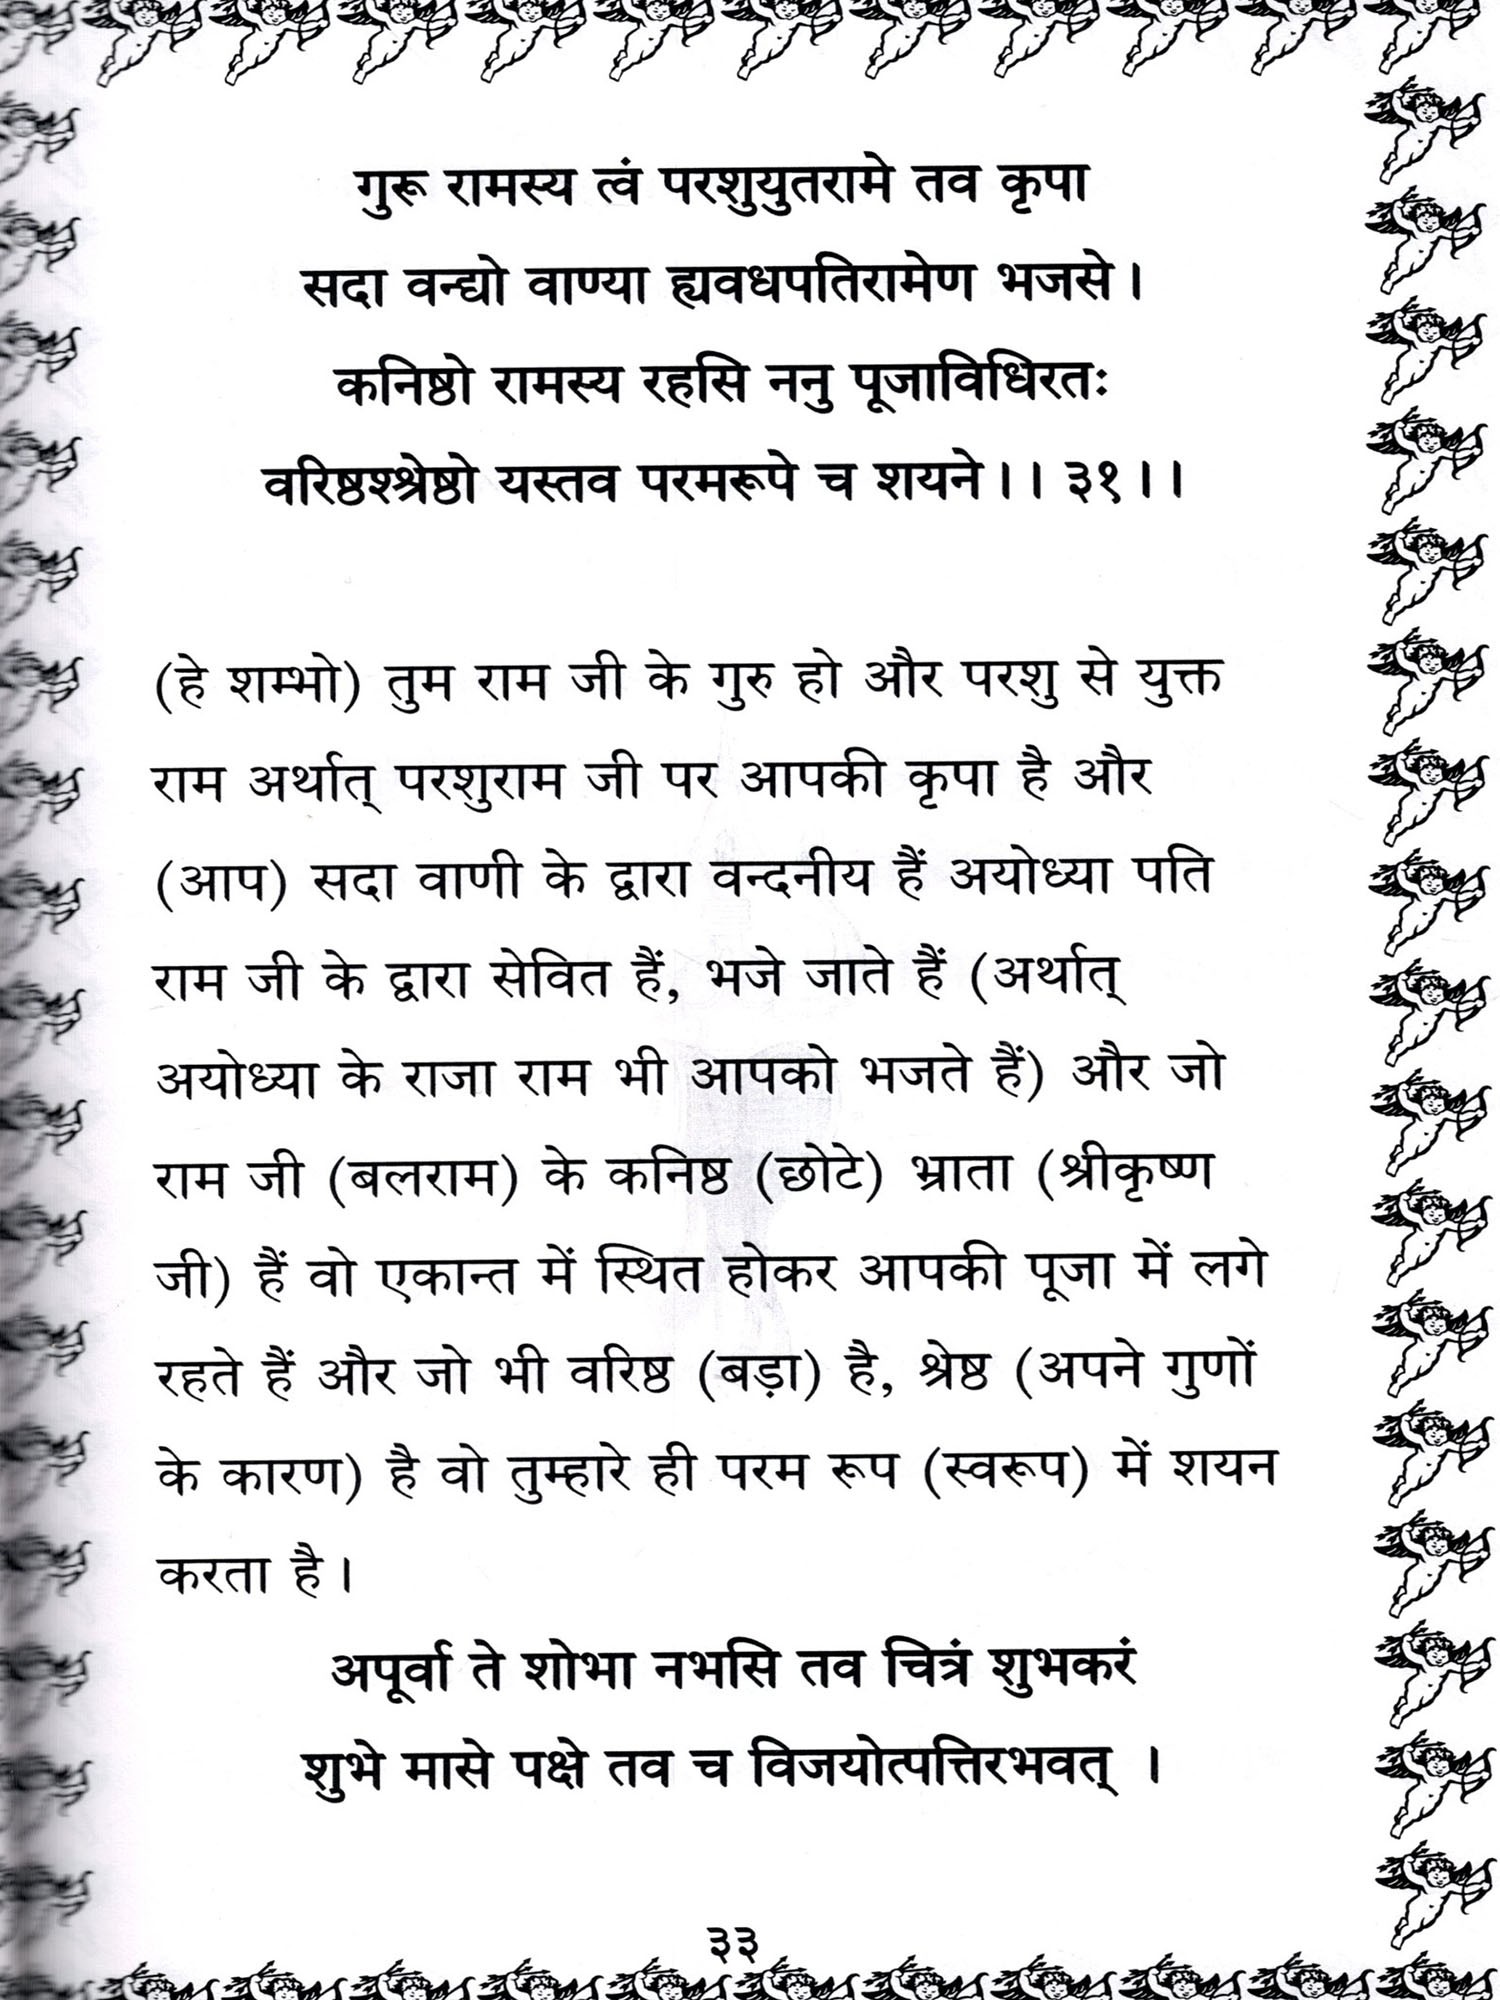 गुरू रामस्य त्वं परशुयुतरामे तव कृपा
सदा वन्द्यो वाण्या ह्यवधपतिरामेण भजसे।
कनिष्ठो रामस्य रहसि ननु पूजाविधिरतः
वरिष्ठश्श्रेष्ठो यस्तव परमरूपे च शयने।। ३१।।
(हे शम्भो) तुम राम जी के गुरु हो और परशु से युक्त
राम अर्थात् परशुराम जी पर आपकी कृपा है और
(आप) सदा वाणी के द्वारा वन्दनीय हैं अयोध्या पति
राम जी के द्वारा सेवित हैं, भजे जाते हैं (अर्थात्
अयोध्या के राजा राम भी आपको भजते हैं) और जो
राम जी (बलराम) के कनिष्ठ (छोटे) भ्राता (श्रीकृष्ण
जी) हैं वो एकान्त में स्थित होकर आपकी पूजा में लगे
रहते हैं और जो भी वरिष्ठ (बड़ा) है, श्रेष्ठ (अपने गुणों
के कारण) है वो तुम्हारे ही परम रूप (स्वरूप) में शयन
करता है।
अपूर्वा ते शोभा नभसि तव चित्रं शुभकरं
शुभे मासे पक्षे तव च विजयोत्पत्तिरभवत् ।
३३